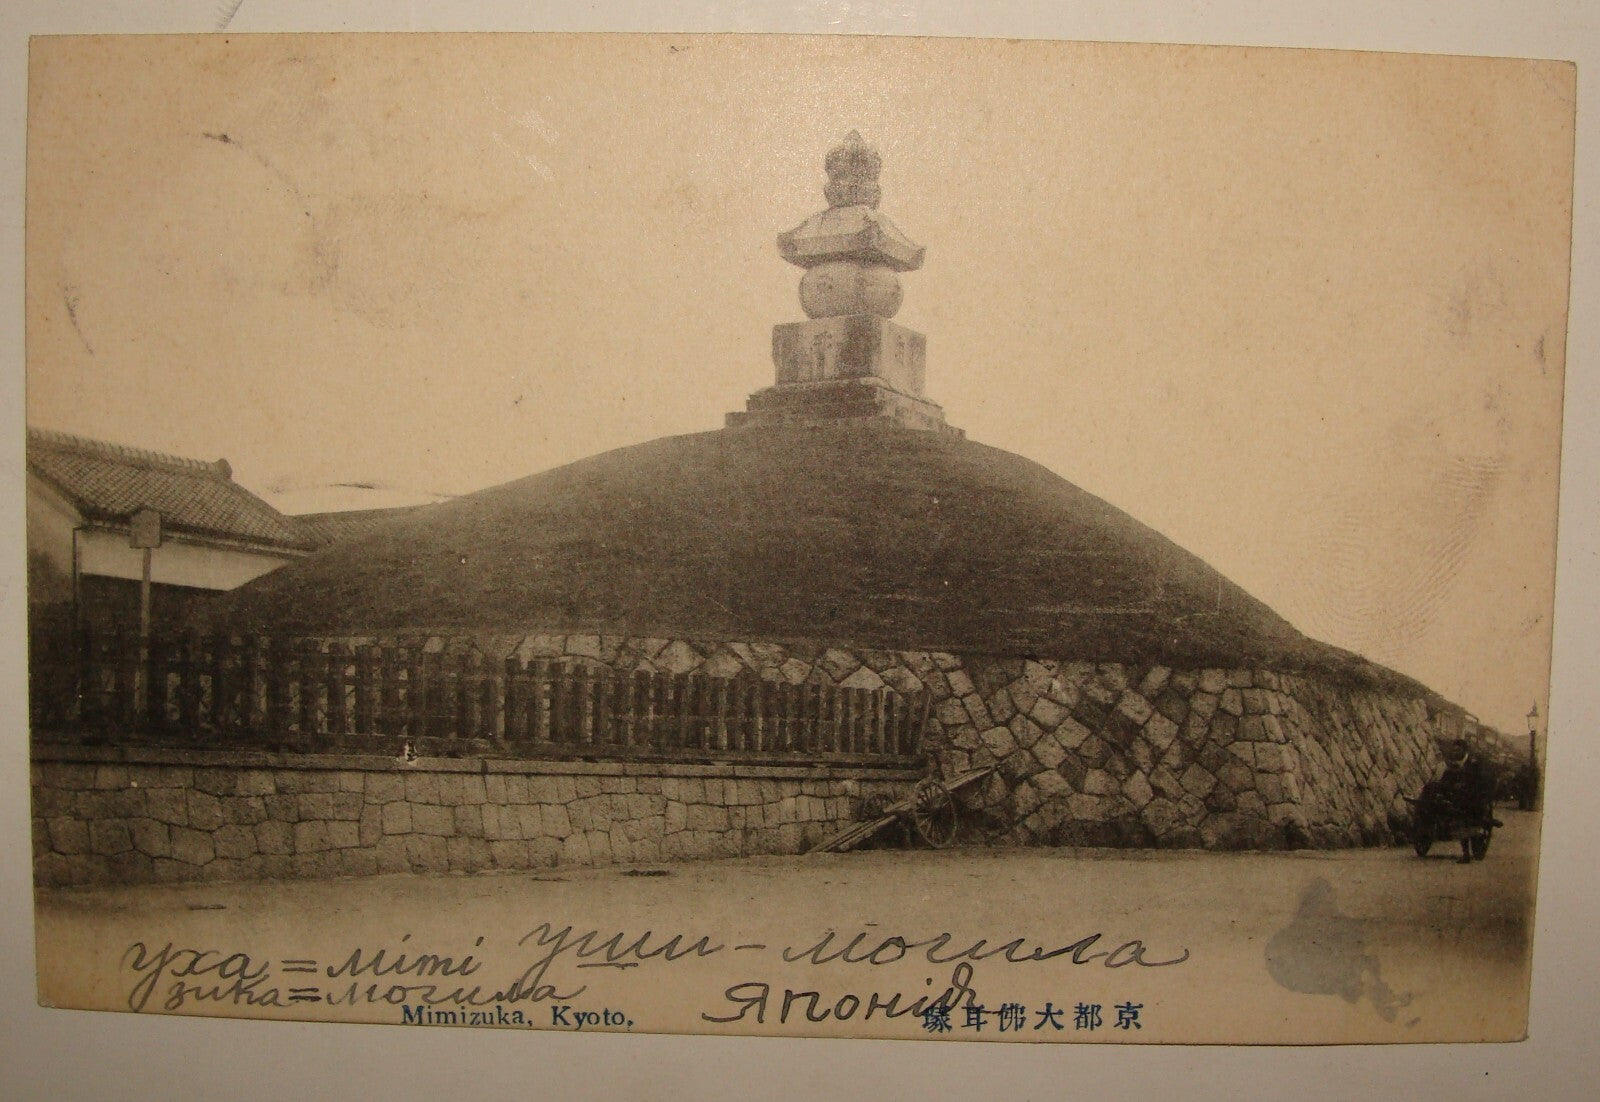 уха = мiтi уши – могила
зика = могила
Японія
Mimizuka, Kyoto.
京都大佛耳塚